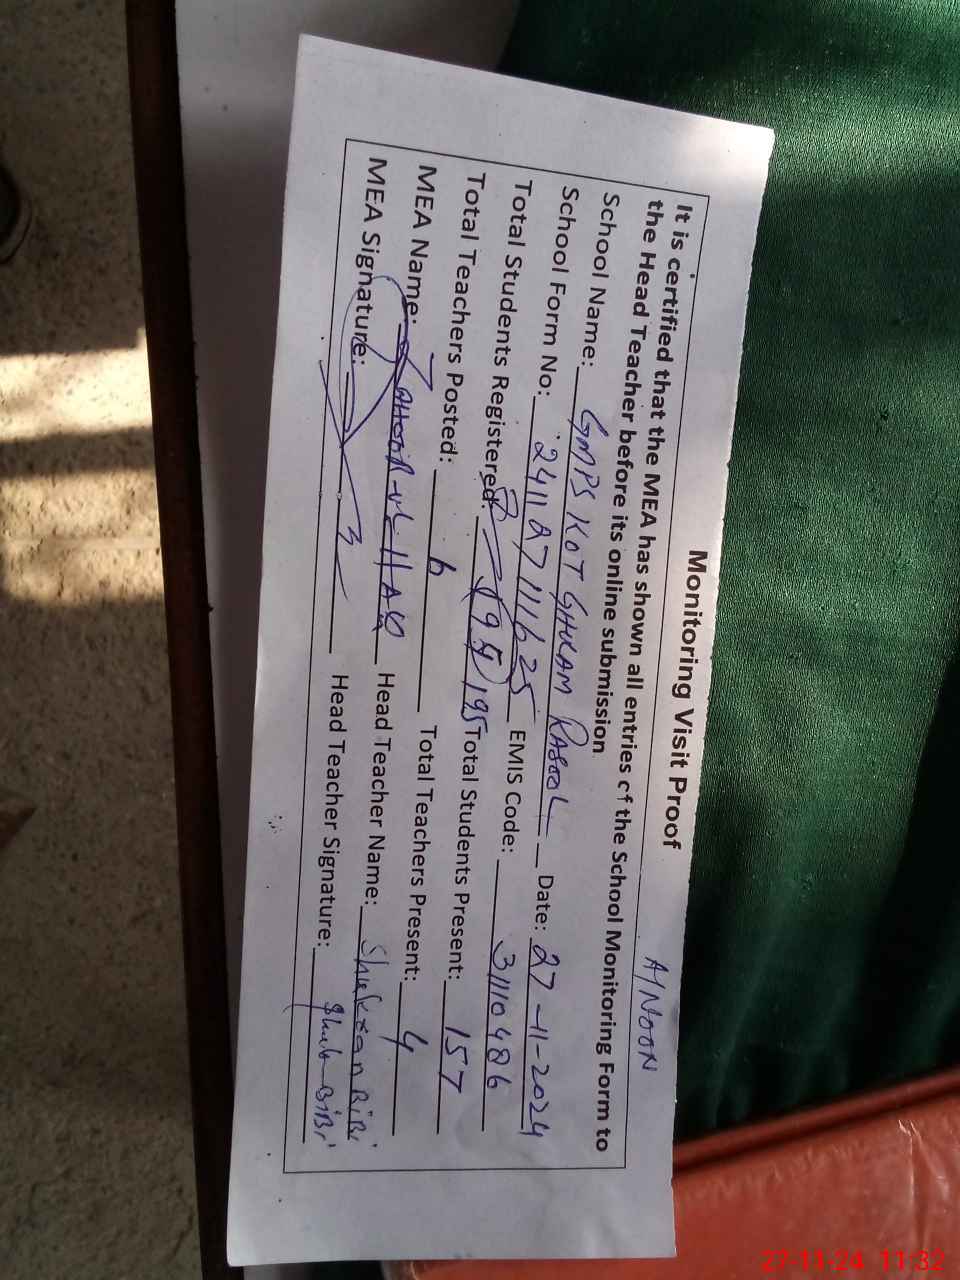 Monitoring Visit Proof
A/NOON
It is certified that the MEA has shown all entries of the School Monitoring Form to
the Head Teacher before its online submission
School Name: GMPS KOT GHULAM RASOOL Date: 27-11-2024
School Form No: 2411271111625 EMIS Code: 31110486
Total Students Registered: 195 Total Students Present: 157
Total Teachers Posted: 6 Total Teachers Present: 4
MEA Name: ZAHOOR-UL-HAQ Head Teacher Name: BiBi
MEA Signature: Head Teacher Signature: BiBi
27-11-24 11:32